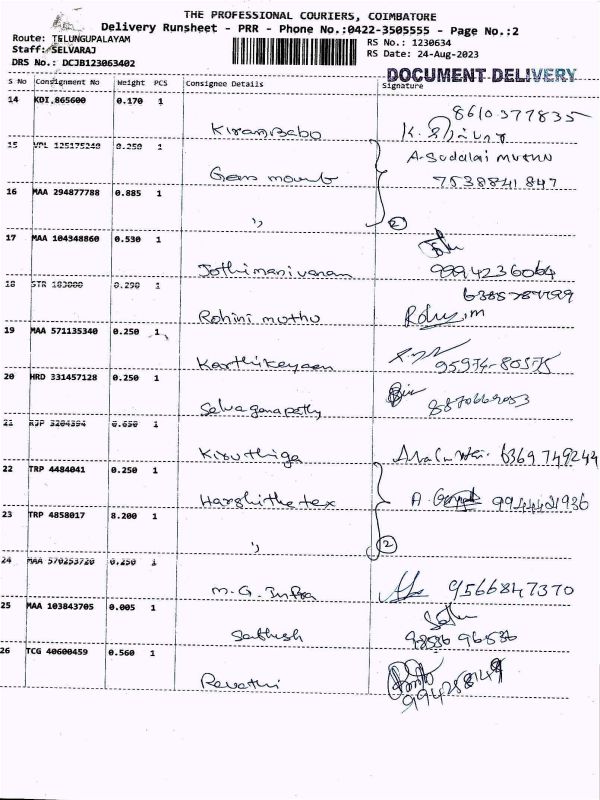 THE PROFESSIONAL COURIERS, COIMBATORE
Delivery Runsheet - PRR - Phone No.:0422-3505555 - Page No.:2
Route: TELUNGUPALAYAM
Staff: SELVARAJ
DRS No.: DCJB123063402
RS No.: 1230634
RS Date: 24-Aug-2023
DOCUMENT DELIVERY
S No Consignment No Weight PCS Consignee Details Signature
14 KDI,865600 0.170 1
8610377835
Kiran Babo
15 VPL 125175240 0.250 1
A. Sudalai muthu
Gem mount 7538841847
16 MAA 294877788 0.885 1
" 2
17 MAA 104348860 0.530 1
Jothimanivanan 9994236064
18 STR 183000 0.290 1
Rohini muthu
19 MAA 571135340 0.250 1
Karthikeyaen
20 HRD 331457128 0.250 1
Selvaganapathy
21 RJP 3204394 0.650 1
Kiruthiga 6369749244
22 TRP 4484041 0.250 1
Harshithe tex A.
23 TRP 4858017 8.200 1
" 2
24 MAA 570253720 0.250 1
M.G. Infra 9566847370
25 MAA 103843705 0.005 1
Sathish
26 TCG 40600459 0.560 1
Revathi